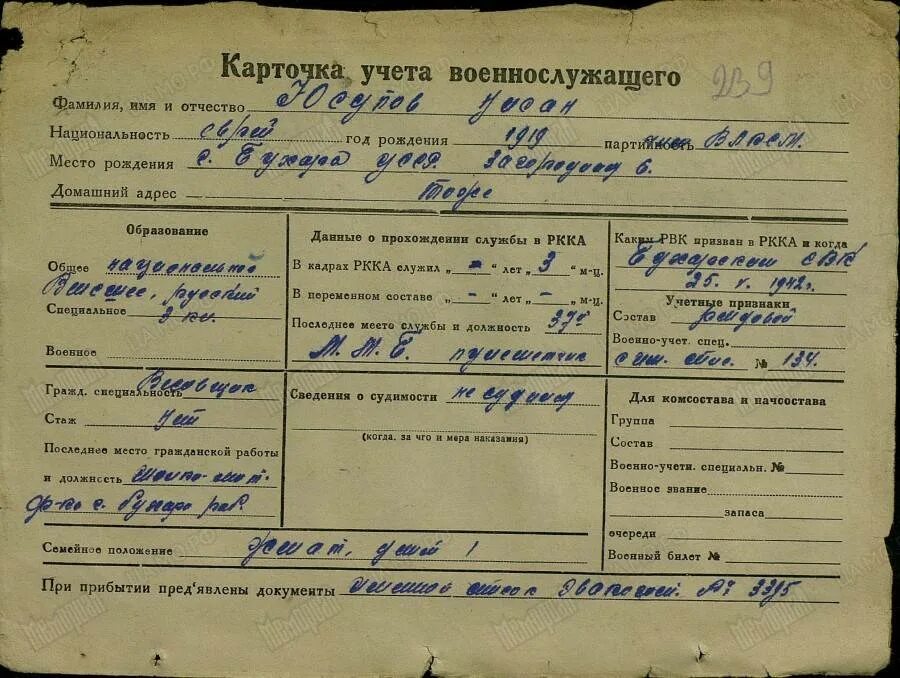 Карточка учета военнослужащего
239
Фамилия, имя и отчество Юсупов Нисан
Национальность еврей год рождения 1919 партийность ВЛКСМ.
Место рождения г. Бухара УССР. Загородная 6.
Домашний адрес тоже
Образование
Общее национальное
Высшее, русский
Специальное 3 кл.
Военное
Данные о прохождении службы в РККА
В кадрах РККА служил „ - “ лет „ 3 “ м-ц.
В переменном составе „ - “ лет „ - “ м-ц.
Последнее место службы и должность 37й
М.М.Б. пулеметчик
Каким РВК призван в РККА и когда
Бухарским ГВК
25. V. 1942 г.
Учетные признаки
Состав рядовой
Военно-учет. спец.
№ 134.
Гражд. специальность Весовщик
Стаж нет
Последнее место гражданской работы
и должность
ф-ка г. Бухара раб.
Сведения о судимости не судим
(когда, за что и мера наказания)
Для комсостава и начсостава
Группа
Состав
Военно-учетн. специальн. №
Военное звание
запаса
очереди
Военный билет №
Семейное положение Женат, детей 1
При прибытии пред'явлены документы именной список Эвакогосп. № 3395